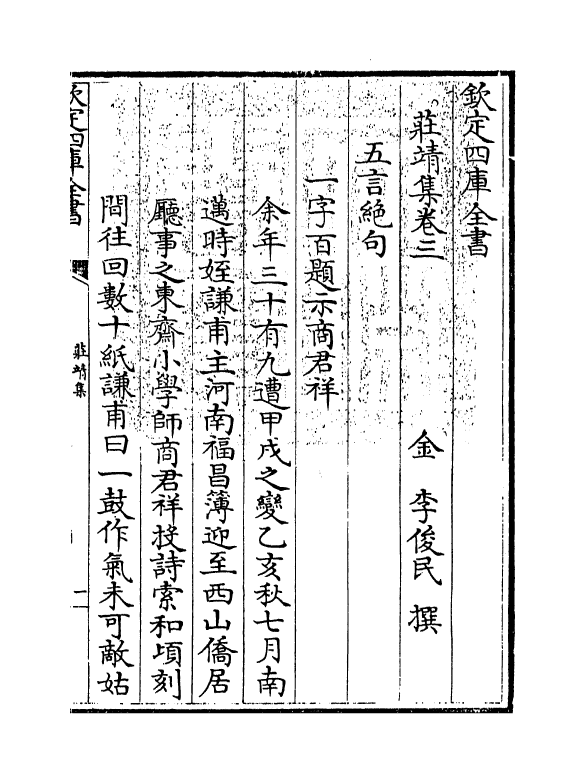 欽定四庫全書
莊靖集卷三
金 李俊民 撰
五言絶句
一字百題示商君祥
余年三十有九遭甲戌之變乙亥秋七月南
邁時姪謙甫主河南福昌簿迎至西山僑居
廳事之東齋小學師商君祥投詩索和頃刻
間往回數十紙謙甫曰一鼓作氣未可敵姑
欽定四庫全書
莊靖集